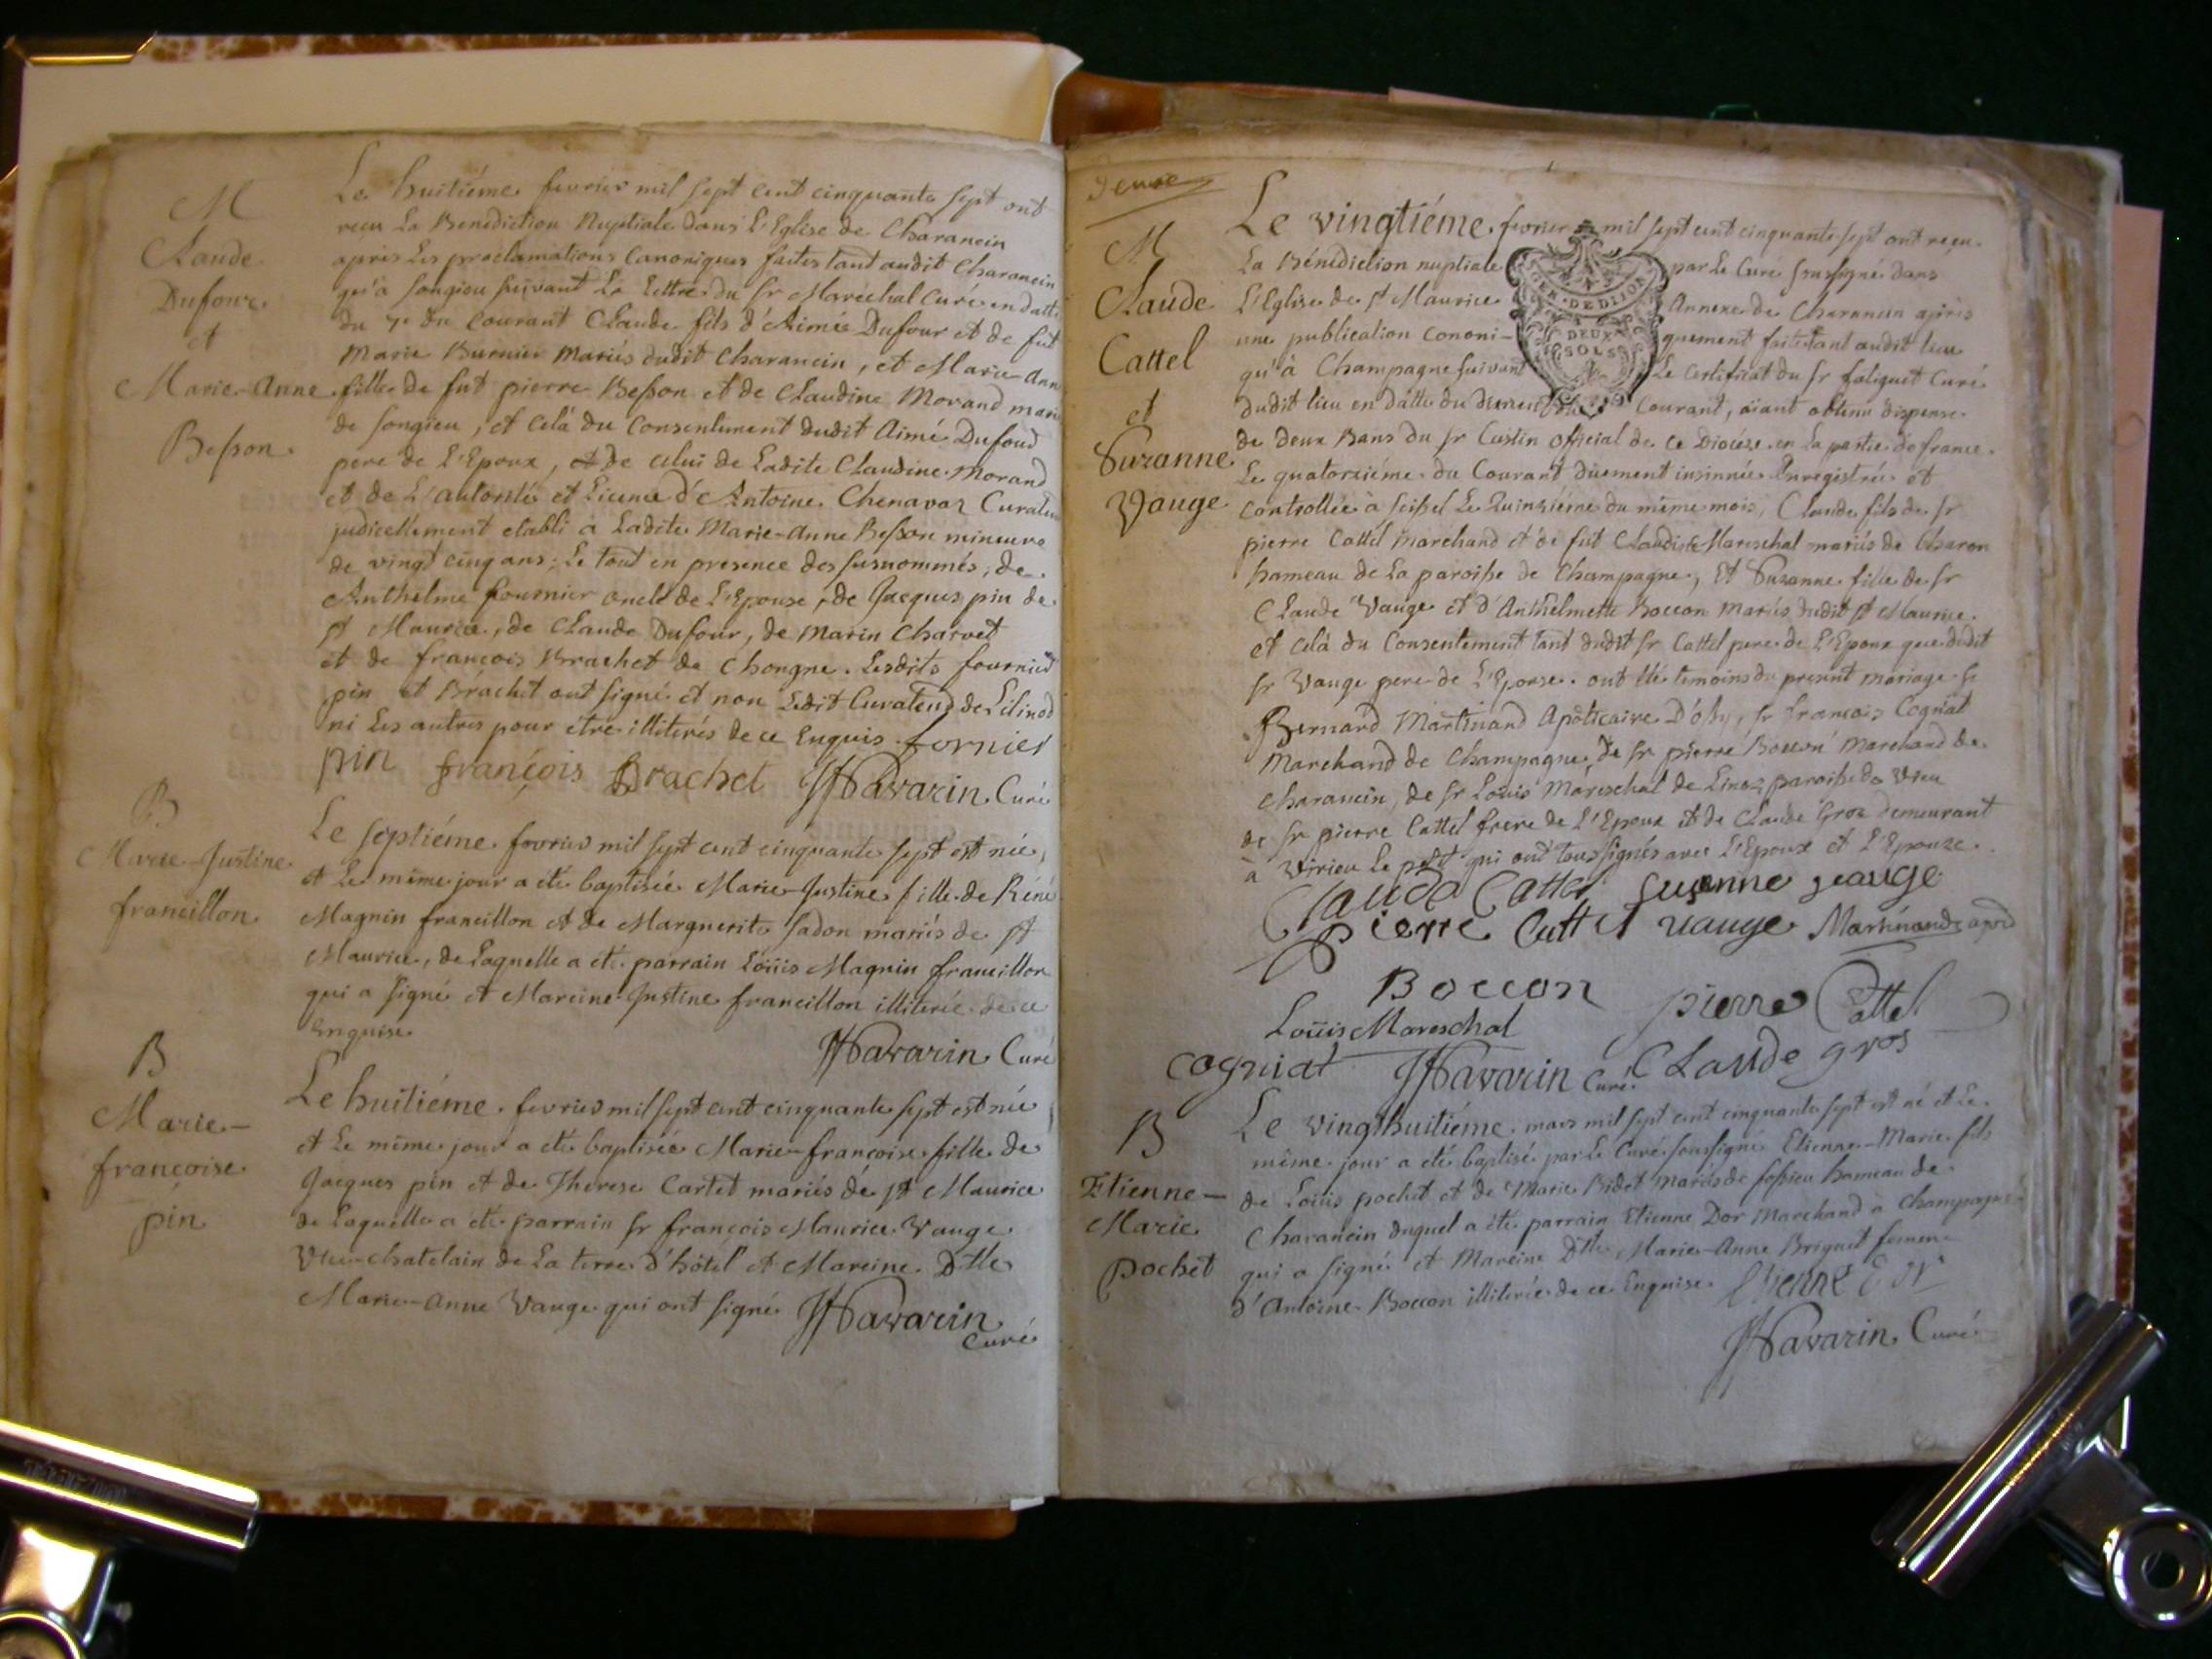 M
Claude
Dufour
et
Marie-Anne
Besson
Le huitiéme fevrier mil sept cent cinquante sept ont
reçu La Benediction Nuptiale dans L'Eglise de Charancin
après Les proclamations Canoniques faites tant audit Charancin
qu'à songieu suivant La Lettre du sr Maréchal Curé en datte
du 7e du Courant Claude fils d'Aimé Dufour et de fut
Marie Burnier Mariés dudit Charancin, et Marie-Anne
fille de fut pierre Besson et de Claudine Morand mariés
de songieu, et celà du Consentement dudit Aimé Dufour
pere de L'Epoux, et de celui de Ladite Claudine Morand
et de L'autorité et Licence d'Antoine Chenavaz Curateur
judicellement etabli à Ladite Marie-Anne Besson mineure
de vingt cinq ans; Le tout en presence des susnommés, de
Anthelme fournier oncle de L'Epouse, de Jacques pin de
st Maurice, de Claude Dufour, de Marin Charvet
et de françois Brachet de Chongne. Lesdits fournier
pin et Brachet ont signé et non Ledit Curateur de Lilinod
ni Les autres pour être illiterés de ce Enquis. fornier
pin françois Brachet JfSavarin Curé
B
Marie-Justine
francillon
Le septiéme fevrier mil sept cent cinquante sept est née,
et Le même jour a été baptisée Marie-Justine fille de Réné
Magnin francillon et de Marguerite sadon mariés de st
Maurice, de Laquelle a été parrain Loüis Magnin francillon
qui a signé et Mareine Justine francillon illiterée de ce
Enquise
JfSavarin Curé
B
Marie-
françoise
pin
Le huitiéme fevrier mil sept cent cinquante sept est née
et Le même jour a été baptisée Marie-françoise fille de
Jacques pin et de Therese Cartet mariés de st Maurice
de Laquelle a été parrain sr françois Maurice Vauge
Vice-chatelain de La terre d'hôtel et Mareine Dlle
Marie-Anne Vauge qui ont signé JfSavarin
Curé
M
Claude
Cattel
et
Suzanne
Vauge
Le vingtiéme fevrier mil sept cent cinquante sept ont reçu
La Bénédiction nuptiale par Le Curé soussigné dans
GEN. DE DIJON
DEUX
SOLS
L'Eglise de st Maurice Annexe de Charancin après
une publication Cononi- quement faite tant audit lieu
qu'à Champagne suivant Le Certificat du sr faliquet Curé
dudit lieu en datte du Courant, aiant obtenu dispense
de deux Bans du sr Custin official de ce Diocése en La partie de france
Le quatorziéme du Courant düement insinuée Enregistrée et
Controllée à seissel Le Quinziéme du même mois, Claude fils de sr
pierre Cattel Marchand et de fut Claudine Mareschal mariés de Charon
hameau de La paroisse de Champagne, Et Suzanne fille de sr
Claude Vauge et d'Anthelmette Boccon Mariés dudit st Maurice
et celà du Consentement tant dudit sr Cattel pere de L'Epoux que dudit
sr Vauge pere de L'Epouse. ont été temoins du present mariage sr
Bernard Martinand Apoticaire D'oby, sr françois Cogniat
Marchand de Champagne, de sr pierre Boccon Marchand de
Charancin, de sr Loüis Mareschal de Linoz paroisse de Vieu
de sr pierre Cattel frere de L'Epoux et de Claude Gros demeurant
à Virieu Le petit qui ont tous signés avec L'Epoux et L'Epouze.
Claude Cattel Suzanne veauge
Pierre Cattel vauge Martinand
Boccon
pierre Cattel
Loüis Mareschal
cogniat JfSavarin Curé Claude gros
B
Etienne-
Marie
Pochet
Le vingthuitiéme mars mil sept cent cinquante sept est né et Le
même jour a été baptisé par Le Curé soussigné Etienne-Marie fils
de Loüis pochet et de Marie Bidet Mariés de fossieu hameau de
Charancin duquel a été parrain Etienne Dor Marchand a Champagne
qui a signé et Mareine Dlle Marie-Anne Briguet femme
d'Antoine Boccon illiterée de ce Enquise. Etienne Dor
JfSavarin Curé